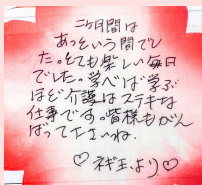 二ヶ月間は
あっという間でし
た。とても楽しい毎日
でした。学べば学ぶ
ほど介護はステキな
仕事です。皆様もがん
ばって下さいね。
♡ネギ王より♡